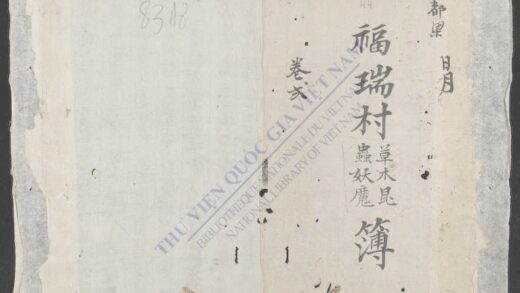 都梁
日月
福瑞村草木昆蟲妖魔簿
卷弍
83A8
THƯ VIỆN QUỐC GIA VIỆT NAM
BIBLIOTHÈQUE NATIONALE DU VIETNAM
NATIONAL LIBRARY OF VIETNAM